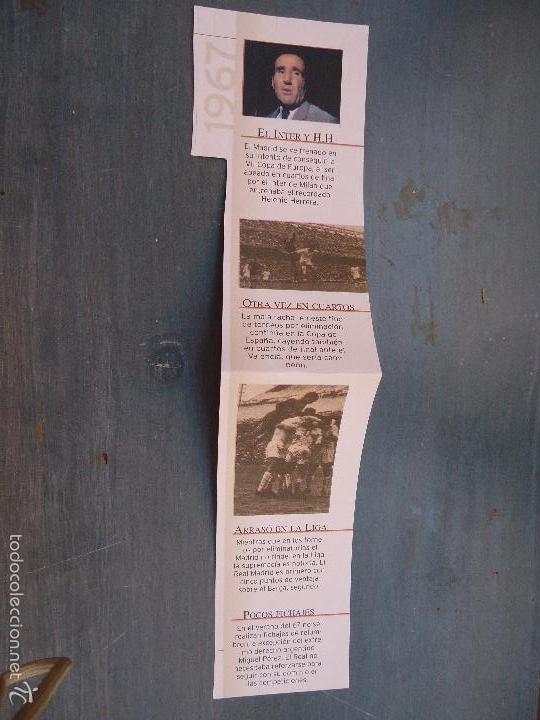 1967
EL INTER Y H.H
El Madrid se ve frenado en
su intento de conseguir la
VII Copa de Europa, al ser
apeado en cuartos de final
por el Inter de Milán que
entrenaba el recordado
Helenio Herrera.
OTRA VEZ EN CUARTOS
La mala racha en este tipo
de torneos por eliminación
continúa en la Copa de
España, cayendo también
en cuartos de final ante el
Valencia, que sería cam-
peón.
ARRASÓ EN LA LIGA
Mientras que en los torne-
os por eliminatorias el
Madrid no rinde, en la Liga
la supremacía es notoria. El
Real Madrid es primero con
cinco puntos de ventaja
sobre el Barça, segundo.
POCOS FICHAJES
En el verano del 67 no se
realizan fichajes de relum-
brón, a excepción del extre-
mo derecho argentino
Miguel Pérez. El Real no
necesitaba reforzarse para
seguir con su dominio en
las competiciones.
todocoleccion.net